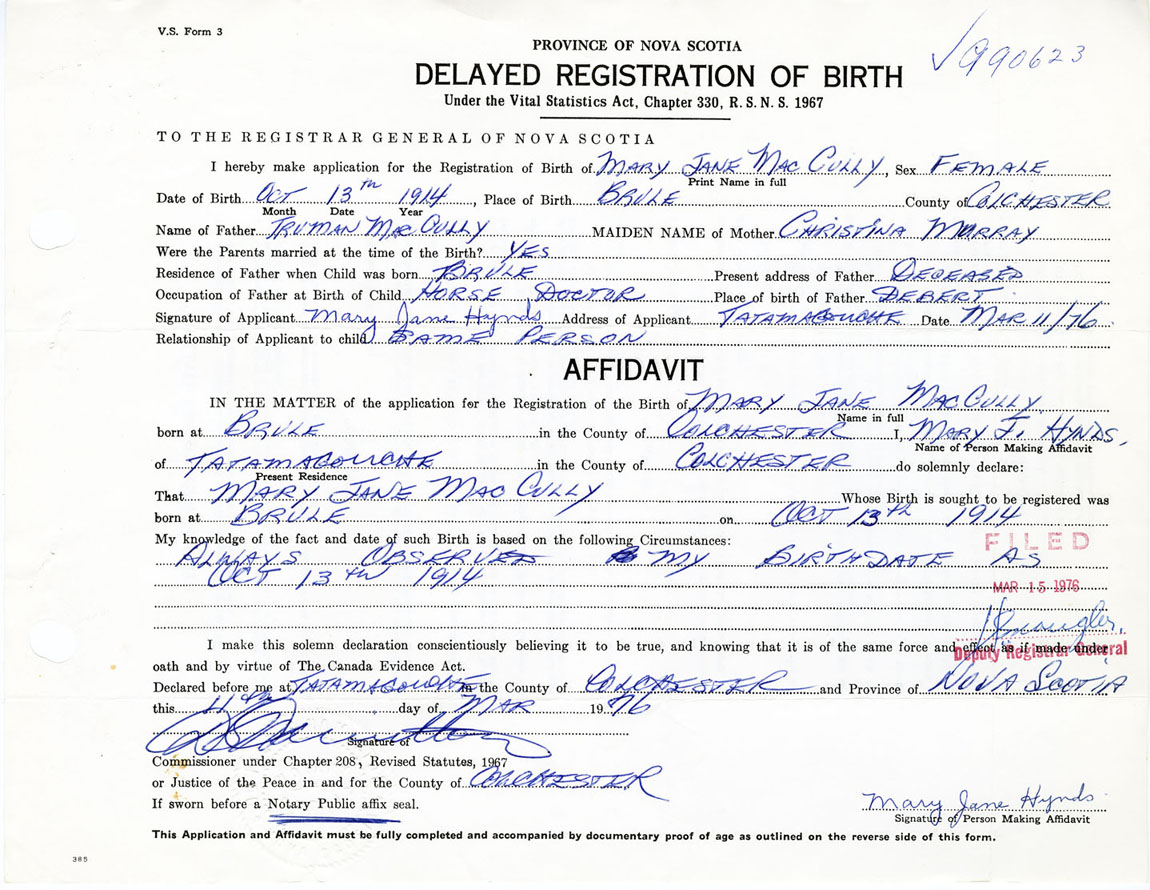 V.S. Form 3
PROVINCE OF NOVA SCOTIA
√990623
DELAYED REGISTRATION OF BIRTH
Under the Vital Statistics Act, Chapter 330, R. S. N. S. 1967
TO THE REGISTRAR GENERAL OF NOVA SCOTIA
I hereby make application for the Registration of Birth of MARY JANE MAC CULLY, Sex FEMALE
Print Name in full
Date of Birth OCT 13th 1914, Place of Birth BRULE County of COLCHESTER
Month Date Year
Name of Father TRUMAN MAC CULLY MAIDEN NAME of Mother CHRISTINA MURRAY
Were the Parents married at the time of the Birth? YES
Residence of Father when Child was born BRULE Present address of Father DECEASED
Occupation of Father at Birth of Child HORSE DOCTOR Place of birth of Father DEBERT
Signature of Applicant Mary Jane Hynds Address of Applicant TATAMAGOUCHE Date MAR 11/76
Relationship of Applicant to child SAME PERSON
AFFIDAVIT
IN THE MATTER of the application for the Registration of the Birth of MARY JANE MACCULLY
Name in full
born at BRULE in the County of COLCHESTER I, MARY J. HYNDS,
Name of Person Making Affidavit
of TATAMAGOUCHE in the County of COLCHESTER do solemnly declare:
Present Residence
That MARY JANE MAC CULLY Whose Birth is sought to be registered was
born at BRULE on OCT 13th 1914
My knowledge of the fact and date of such Birth is based on the following Circumstances:
ALWAYS OBSERVED MY BIRTHDATE AS
OCT 13th 1914
FILED
MAR 15 1976
Deputy Registrar General
I make this solemn declaration conscientiously believing it to be true, and knowing that it is of the same force and effect as if made under
oath and by virtue of The Canada Evidence Act.
Declared before me at TATAMAGOUCHE in the County of COLCHESTER and Province of NOVA SCOTIA
this 11th day of MAR 1976
Signature of
Commissioner under Chapter 208, Revised Statutes, 1967
or Justice of the Peace in and for the County of COLCHESTER
If sworn before a Notary Public affix seal.
Mary Jane Hynds
Signature of Person Making Affidavit
This Application and Affidavit must be fully completed and accompanied by documentary proof of age as outlined on the reverse side of this form.
385